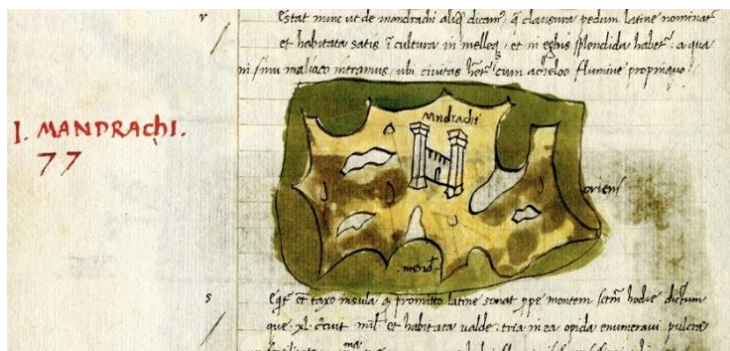 r
Estat nunc ut de mandrachi aliqͥ dicam, q̄ clausura pedum latine nominat
et habitata satis ī cultura in melleq; et in egbus splendida habet. a qua
in sinu maliaco intramus, ubi civitas cum acheloo flumine propinquo.
I. MANDRAChI.
77
Mndrachi
oriens
merid.
s
taxo insula latine sonat montem hodie dictum
que .xl. mil. et habitata valde. tria in ea opida enumeravi pulcra